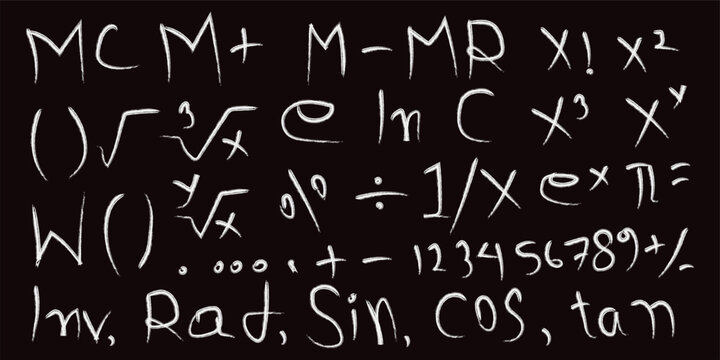 MC M+ M- MR x! x²
( ) √ ³√x e ln C x³ xʸ
W ( ) ʸ√x % ÷ 1/x eˣ π =
. .... ooo. . + - 123456789+/-
Inv, Rad, Sin, COS, tan